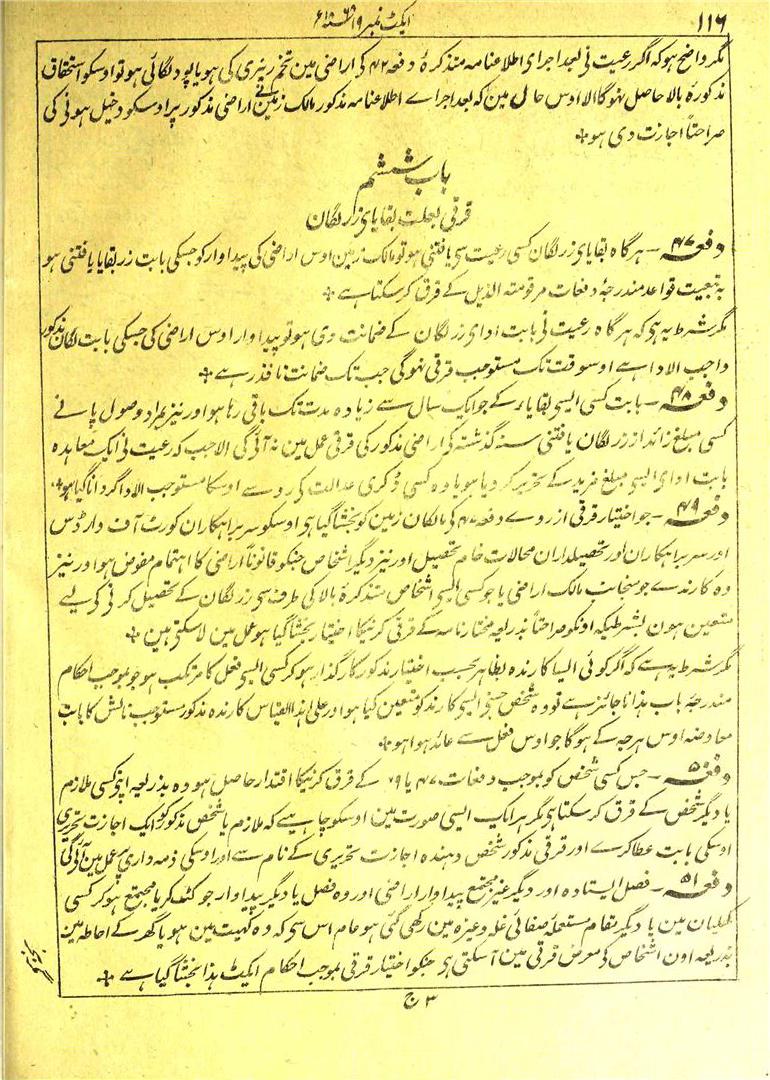 ۱۱۶
ایکٹ نمبر ۱۹ سنہ ۱۸۶۸ع
مگر واضح ہو کہ اگر رعیت نی بعد اجرای اطلاعنامہ متذکرۂ دفعہ ۴۲ کی اراضی مین تخم ریزی کی ہو یا پود لگائی ہو تو اوسکو استحقاق
مذکورۂ بالا حاصل نہوگا الا اوس حال مین کہ بعد اجراے اطلاعنامہ مذکور مالک زمین نے اراضی مذکور پر اوسکو دخیل ہونی کی
صراحتاً اجازت دی ہو ❊
باب ششم
قرقی بعلت بقایای زر لگان
دفعہ ۴۷ ۔ ہر گاہ بقایای زر لگان کسی رعیت سی یافتنی ہو تو مالک زمین اوس اراضی کی پیداوار کو جسکی بابت زر بقایا یافتنی ہو
بہ تبعیت قواعد مندرجۂ دفعات مرقومتہ الذیل کے قرق کر سکتا ہے ❊
مگر شرط یہ ہی کہ ہر گاہ رعیت نی بابت ادای زر لگان کے ضمانت دی ہو تو پیداوار اوس اراضی کی جسکی بابت لگان مذکور
واجب الادا ہے اوسوقت تک مستوجب قرقی نہوگی جب تک ضمانت نافذ رہے ❊
دفعہ ۴۸ ۔ بابت کسی ایسی بقایاء کے جو ایک سال سے زیادہ مدت تک باقی رہا ہو اور نیز بمراد وصول پانے
کسی مبلغ زائد از زر لگان یافتنی سنہ گذشتہ کی اراضی مذکور کی قرقی عمل مین نہ آئی گی الا جب کہ رعیت نی ایک معاہدہ
بابت ادای ایسی مبلغ مزید کے تحریر کر دیا ہو یا وہ کسی ڈگری عدالت کی رو سے اوسکا مستوجب الادا گردانا گیا ہو ❊
دفعہ ۴۹ ۔ جو اختیار قرقی از روے دفعہ ۴۷ کی مالکان زمین کو بخشا گیا ہی اوسکو سربراہکاران کورٹ آف وارڈس
اور سربراہکاران اور تحصیلداران محالات خام تحصیل اور نیز دیگر اشخاص جنکو قانوناً اراضی کا اہتمام مفوض ہو اور نیز
وہ کارندے جو منجانب مالک اراضی یا جو کسی ایسی اشخاص متذکرۂ بالا کی طرف سی زر لگان کے تحصیل کرنی کی لیے
متعین ہون بشرطیکہ اونکو صراحتاً بذریعہ مختارنامہ کے قرقی کرنیکا اختیار بخشا گیا ہو عمل مین لا سکتی ہین ❊
مگر شرط یہ ہے کہ اگر کوئی ایسا کارندہ بظاہر بحسب اختیار مذکور کارگذار ہو کر کسی ایسی فعل کا مرتکب ہو جو بموجب احکام
مندرجۂ باب ہذا ناجائز ہے تو وہ شخص جسنی ایسی کارندہ کو متعین کیا ہو اور علی ہذا القیاس کارندہ مذکور مستوجب نالش کا بابت
معاوضہ اوس ہرجہ کے ہوگا جو اوس فعل سے عائد ہوا ہو ❊
دفعہ ۵۰ ۔ جس کسی شخص کو بموجب دفعات ۴۷ یا ۴۹ کے قرق کرنیکا اقتدار حاصل ہو وہ بذریعہ اپنی کسی ملازم
یا دیگر شخص کے قرق کر سکتا ہی مگر ہر ایک ایسی صورت مین اوسکو چاہیے کہ ملازم یا شخص مذکور کو ایک اجازت تحریری
اوسکی بابت عطا کرے اور قرقی مذکور شخص دہندہ اجازت تحریری کے نام سے اور اوسکی ذمہ داری پر عمل مین آئی گی
دفعہ ۵۱ ۔ فصل ایستادہ اور دیگر غیر مجتمع پیداوار اراضی اور وہ فصل یا دیگر پیداوار جو کٹ کر یا مجتمع ہو کر کسی
کھلیان مین یا دیگر مقام مستعملہ صفائی غلہ وغیرہ مین رکھی گئی ہو عام اس سی کہ وہ کھیت مین ہو یا گھر کے احاطہ مین
بذریعہ اون اشخاص کی معرض قرقی مین آ سکتی ہی جنکو اختیار قرقی بموجب احکام ایکٹ ہذا بخشا گیا ہے ❊
۳ ج